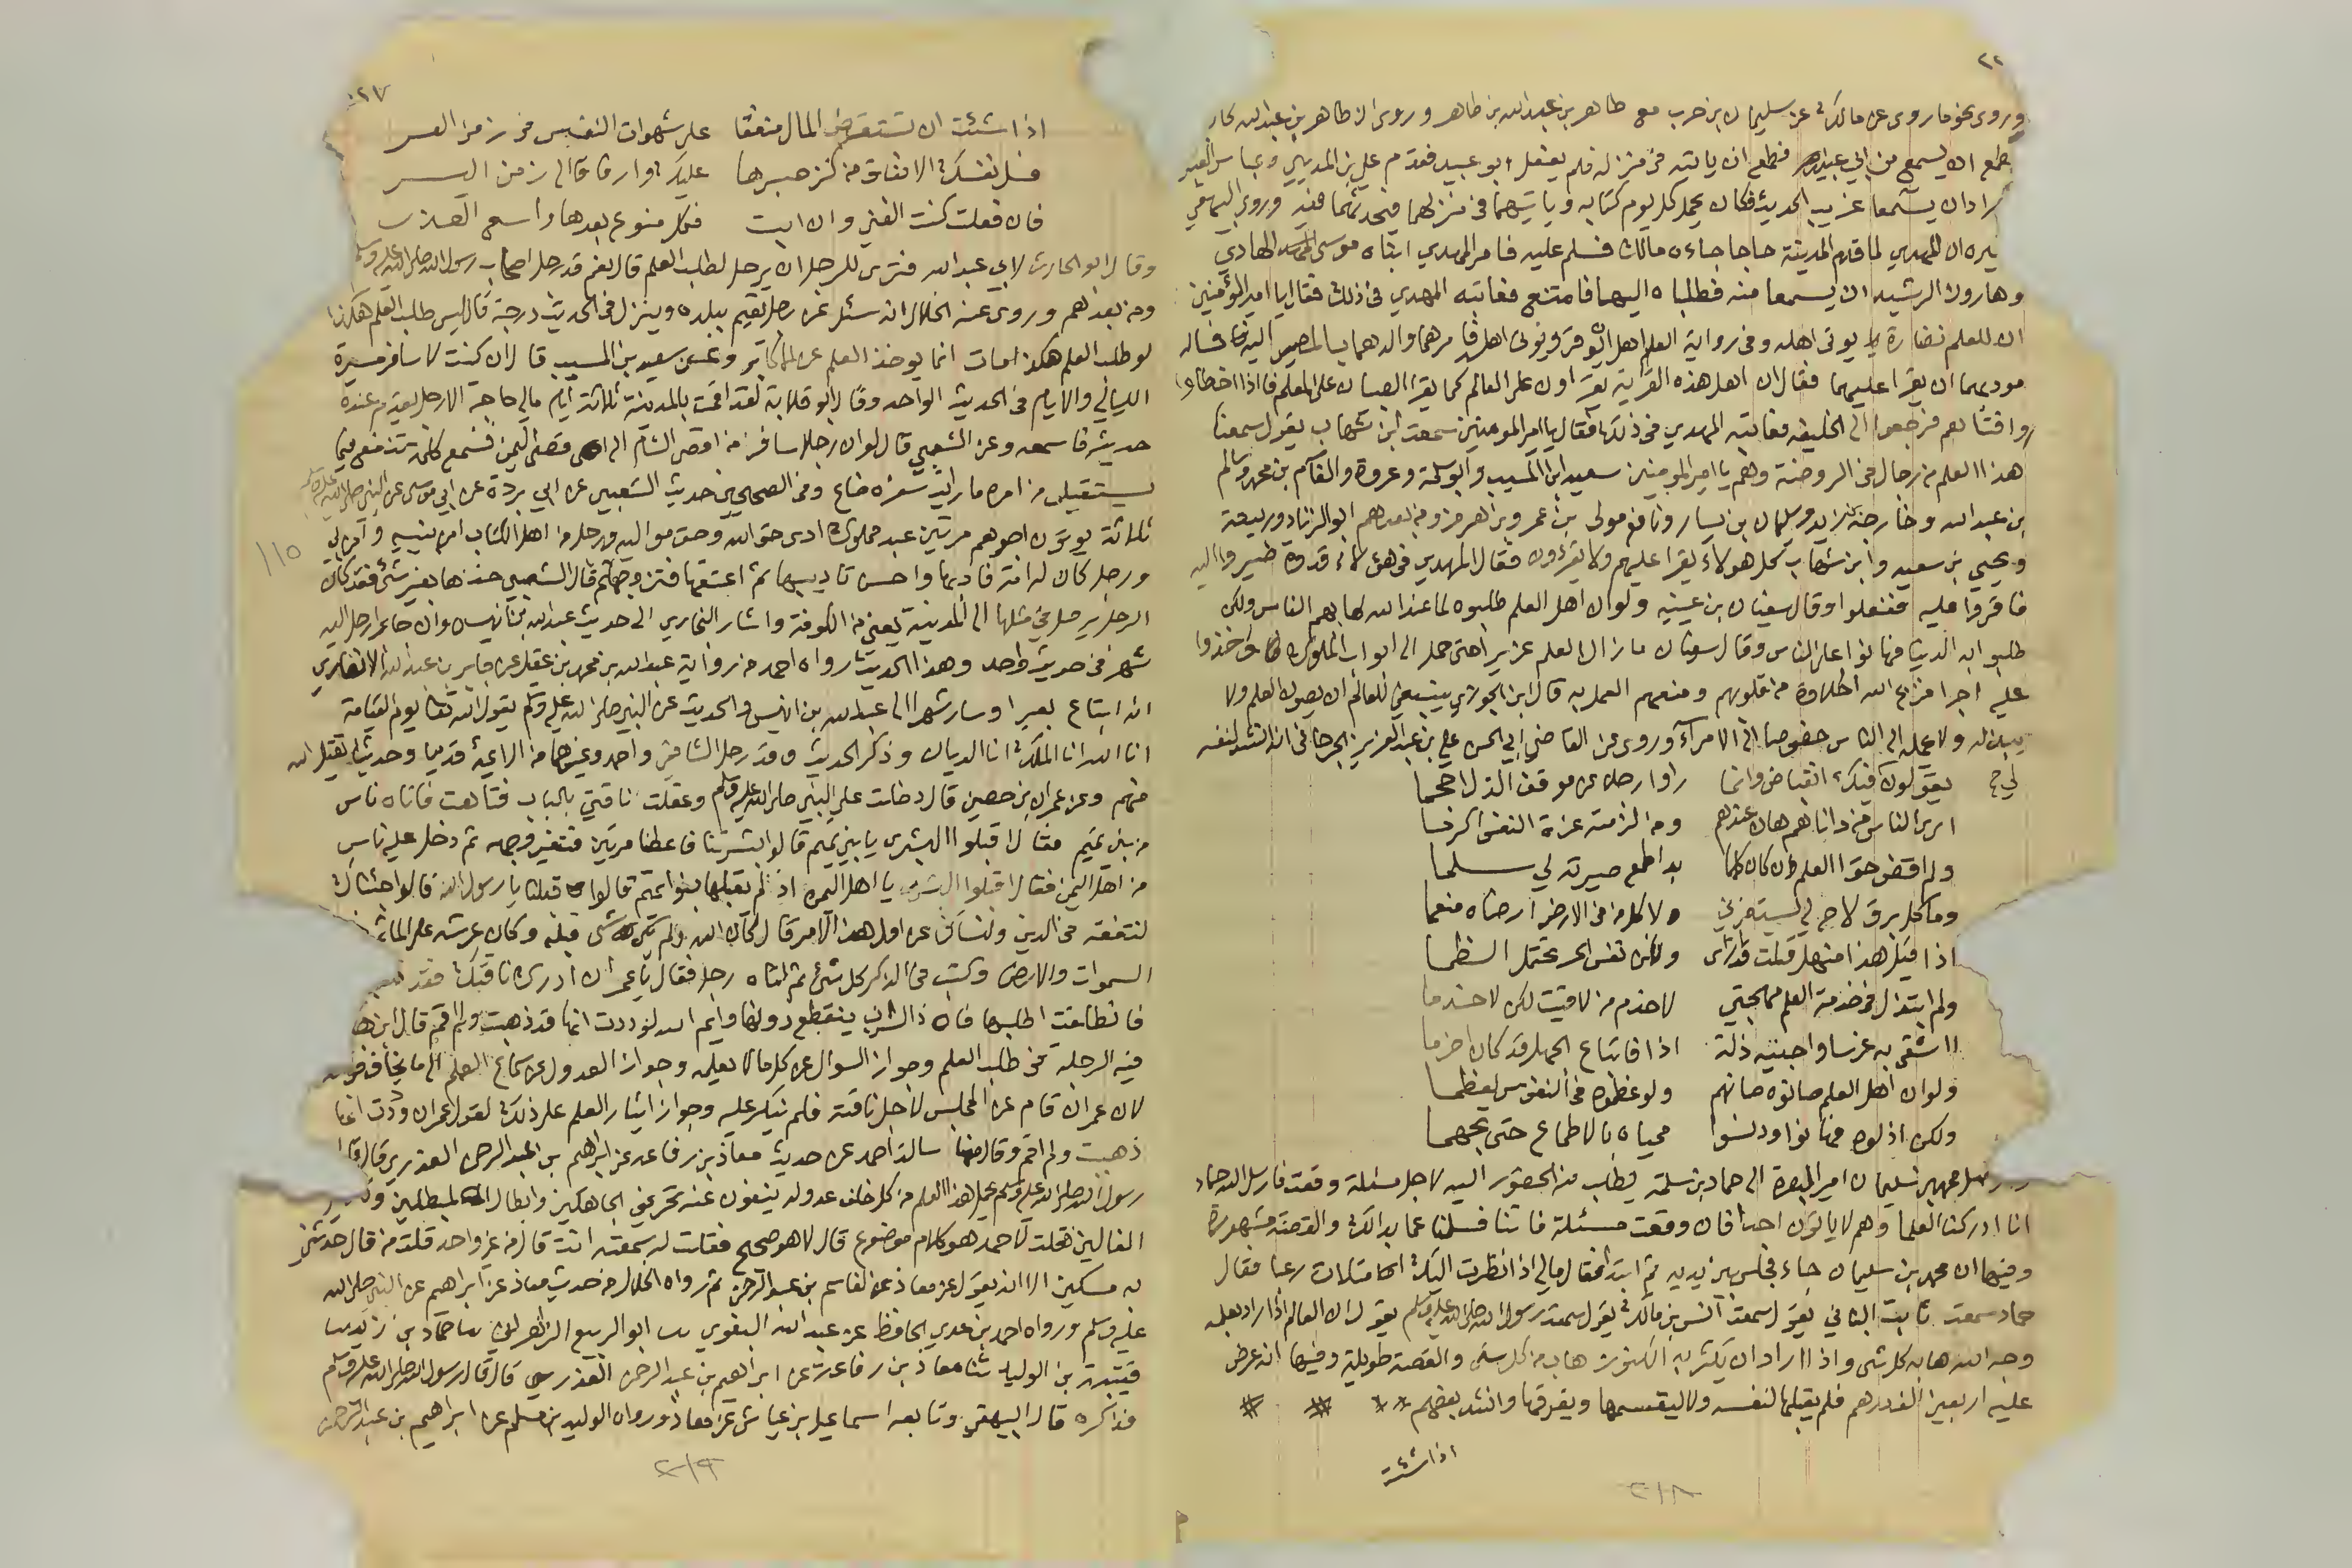 وروى نحو ما روى عن مالك عن سليمان بن حرب مع طاهر بن عبد الله بن طاهر وروى ان طاهر بن عبد الله كان
يطمع ان يسمع من ابي عبيد فطمع ان ياتيه في منزله فلم يفعل ابو عبيد فقدم علي بن المديني وعباس العنبري
ارادان يسمعا غريب الحديث فكان يحمل كل يوم كتابه وياتيهما في منزلهما فيحدثهما فيه وروى البيهقي
وغيره ان المهدي لما قدم المدينة حاجا جاءه مالك فسلم عليه فامر المهدي ابناه موسى الهادي
وهارون الرشيد ان يسمعا منه فطلباه اليهما فامتنع فعاتبه المهدي في ذلك فقال يا امير المؤمنين
ان للعلم نضارة يوتى اهله وفي رواية العلم اهل ان يوقر ويوتى اهله فامرهما والدهما بالمصير اليه فساله
مودبهما ان يقرا عليهما فقال ان اهل هذه القرية يقراون على العالم كما يقرا الصبيان على المعلم فاذا اخطاوا
افتاهم فرجعوا الى الخليفه فعاتبه المهدي في ذلك فقال يا امير المومنين سمعت ابن شهاب يقول سمعنا
هذا العلم من رجال في الروضة وهم يا امير المومنين سعيد ابن المسيب وابو سلمة وعروة والقاسم بن محمد وسالم
بن عبد الله وخارجة بن زيد وسليمان بن يسار ونافع مولى بن عمر وبن هرمز ومن بعدهم ابو الزناد وربيعة
ويحيى بن سعيد وابن شهاب كل هولاء يقرا عليهم ولا يقرءون فقال المهدي في هولاء قدوة صيروا اليه
فاقروا عليه ففعلوا وقال سفيان بن عيينه ولو ان اهل العلم طلبوه لما عند الله لهابهم الناس ولكن
طلبوا به الدنيا فهانوا على الناس وقال سفيان ما زال العلم عزيزا حتى حمل الى ابواب الملوك فاخذوا
عليه اجرا فنزع الله الحلاوة من قلوبهم ومنعهم العمل به قال ابن الجوزي ينبغي للعالم ان يصون العلم ولا
يبذله ولا يحمله الى الناس خصوصا الى الامراء وروى عن القاضي ابي الحسن علي بن عبد العزيز الجرجاني انه انشد لنفسه
يقولون فيك انقباض وانما راوا رجلا عن موقف الذل احجما
ارى الناس من داناهم هان عندهم ومن الزمته عزة النفس اكرما
ولم اقض حق العلم ان كان كلما بدا طمع صيرته لي سلما
وما كل برق لاح لي يستفزني ولا كل من في الارض ارضاه منعما
اذا قيل هذا منهل قلت قد ارى ولكن نفس الحر تحتمل الظما
ولم ابتذل في خدمة العلم مهجتي لاخدم من لاقيت لكن لاخدما
ااشقى به غرسا واجنيه ذلة اذا فاتباع الجهل قد كان احزما
ولو ان اهل العلم صانوه صانهم ولو عظموه في النفوس لعظما
ولكن اذلوه فهانوا ودنسوا محياه بالاطماع حتى تجهما
محمد بن سليمان امير البصرة الى حماد بن سلمة يطلب منه الحضور اليه لاجل مسئلة وقعت فارسل اليه حماد
انا ادركنا العلما وهم لا ياتون احدا فان وقعت مسئلة فاتنا فسلنا عما بدا لك والقصة مشهورة
وفيها ان محمد بن سليمان جاء فجلس بين يديه ثم ابتدا فقال مالي اذا نظرت اليك امتلات رعبا فقال
حماد سمعت ثابت البناني يقول سمعت انس بن مالك يقول سمعت رسول الله صلى الله عليه وسلم يقول ان العالم اذا اراد بعلمه
وجه الله هابه كل شى واذا اراد ان يكثر به الكنوز هاب من كل شى والقصة طويلة وفيها انه عرض
عليه اربعين الف درهم فلم يقبلها لنفسه ولا ليقسمها ويفرقها وانشد بعضهم
اذا شئت
٢١٨
٢٧
اذا شئت ان تستقرض المال منفقا على شهوات النفس في زمن العسر
فسل نفسك الانفاق من كنز صبرها عليك وارفاقا الى زمن اليسر
فان فعلت كنت الغني وان ابت فكل منوع بعدها واسع العذر
وقال ابو الحارث لابي عبد الله فترى للرجل ان يرحل لطلب العلم قال نعم قد رحل اصحاب رسول الله صلى الله عليه وسلم
ومن بعدهم وروى عنه الخلال انه سئل عن رجل يقيم ببلده وينزل في الحديث درجة قال ليس طلب العلم هكذا
لو طلب العلم هكذا مات انما يوخذ العلم عن الاكابر وعن سعيد بن المسيب قال ان كنت لاسافر مسيرة
الليالي والايام في الحديث الواحد وقال ابو قلابة لقد اقمت بالمدينة ثلاثة ايام مالي حاجة الا رجل يقدم عنده
حديث فاسمعه وعن الشعبي قال لو ان رجلا سافر من اقصى الشام الى اقصى اليمن فسمع كلمة تنفعه فيما
يستقبل من امره ما رايت سفره ضاع وفي الصحيحين حديث الشعبي عن ابي بردة عن ابي موسى عن النبي صلى الله عليه وسلم
ثلاثة يوتون اجرهم مرتين عبد مملوك ادى حق الله وحق مواليه ورجل من اهل الكتاب امن بنبيه وامن بي
ورجل كان له امة فادبها واحسن تاديبها ثم اعتقها فتزوجها ثم قال الشعبي خذها بغير شى فقد كان
الرجل يرحل في مثلها الى المدينة يعني من الكوفة واشار البخاري الى حديث عبد الله بن انيس وان جابرا رحل اليه
شهر في حديث واحد وهذا الحديث رواه احمد من رواية عبد الله بن محمد بن عقيل عن جابر بن عبد الله الانصاري
انه ابتاع بعيرا وسار شهرا الى عبد الله بن انيس والحديث عن النبي صلى الله عليه وسلم يقول الله تعالى يوم القيامة
انا الله انا الملك انا الديان وذكر الحديث وقد رحل الشافعي واحمد وغيرهما من الايمة قديما وحديثا تقبل الله
منهم وعن عمران بن حصين قال دخلت على النبي صلى الله عليه وسلم وعقلت ناقتي بالباب فتاهت فاتاه ناس
من بني تميم فقال اقبلوا البشرى يا بني تميم قالوا بشرتنا فاعطنا مرتين فتغير وجهه ثم دخل عليه ناس
من اهل اليمن فقال اقبلوا البشرى يا اهل اليمن اذ لم يقبلها بنو تميم قالوا قبلنا يا رسول الله قالوا جئناك
لنتفقه في الدين ولنسالك عن اول هذا الامر قال كان الله ولم يكن شى قبله وكان عرشه على الماء
السموات والارض وكتب في الذكر كل شى ثم اتاه رجل فقال يا عمران ادرك ناقتك فقد ذهبت
فانطلقت اطلبها فاذا السراب ينقطع دونها وايم الله لوددت انها قد ذهبت ولم اقم قال ابن
فيه الرحلة في طلب العلم وجواز السوال عن كل مالا يعلمه وجواز العدول عن سماع العلم الى ما يخاف فوته
لان عمران قام عن المجلس لاجل ناقته فلم ينكر عليه وجواز ايثار العلم على ذلك لقول عمران وددت انها
ذهبت ولم اقم وقال مهنا سالت احمد عن حديث معاذ بن رفاعه عن ابراهيم بن عبد الرحمن العذري قال قال
رسول الله صلى الله عليه وسلم يحمل هذا العلم من كل خلف عدوله ينفون عنه تحريف الجاهلين وانتحال المبطلين
الغالين فقلت لاحمد هو كلام موضوع قال لا هو صحيح فقلت له سمعته انت قال من غير واحد قلت من قال حدثني
به مسكين الا انه يقول عن معاذ عن القاسم بن عبد الرحمن ثم رواه الخلال من حديث معاذ عن ابراهيم عن النبي صلى الله
عليه وسلم ورواه احمد بن عدي الحافظ عن عبد الله البغوي ثنا ابو الربيع الزهراني ثنا حماد بن زيد ثنا
بن الوليد ثنا معاذ بن رفاعة عن ابراهيم بن عبد الرحمن العذري قال قال رسول الله صلى الله عليه وسلم
فذاكره قال البيهقي وتابعه اسماعيل بن عياش عن معاذ ورواه الوليد بن مسلم عن ابراهيم بن عبد الرحمن
١١٥
٢١٩